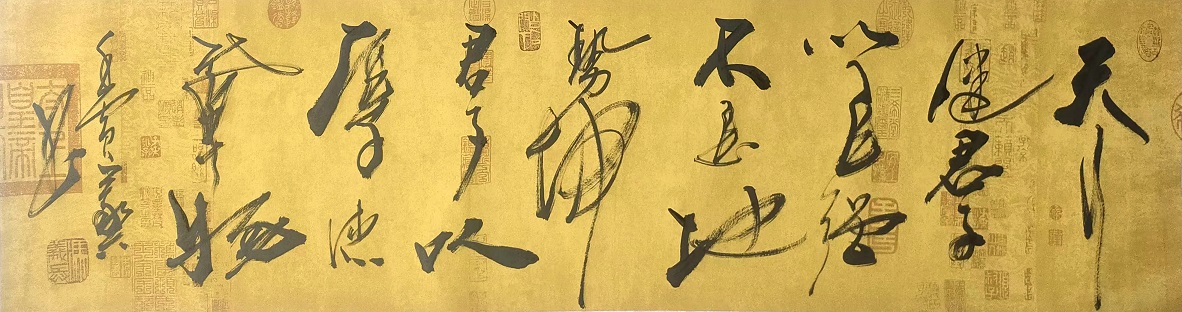 天行
健君子
以自强
不息地
勢坤
君子以
厚德
載物
壬寅